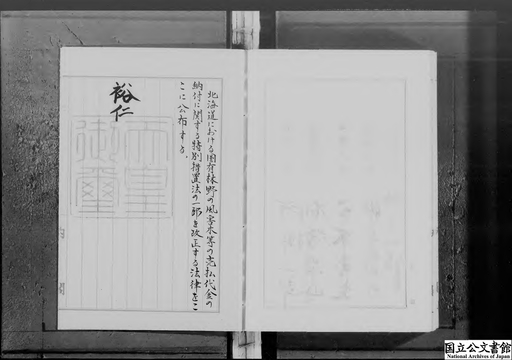 北海道における国有林野の風害木等の売払代金の
納付に関する特別措置法の一部を改正する法律をこ
こに公布する。
裕仁
天皇
御璽
国立公文書館
National Archives of Japan